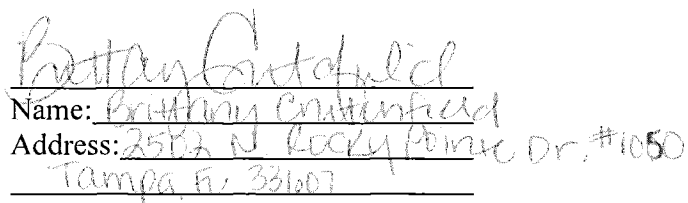 Brittany Crutchfield
Name: Brittany Crutchfield
Address: 2502 N. Rocky Pointe Dr. #1050
Tampa Fl. 33607